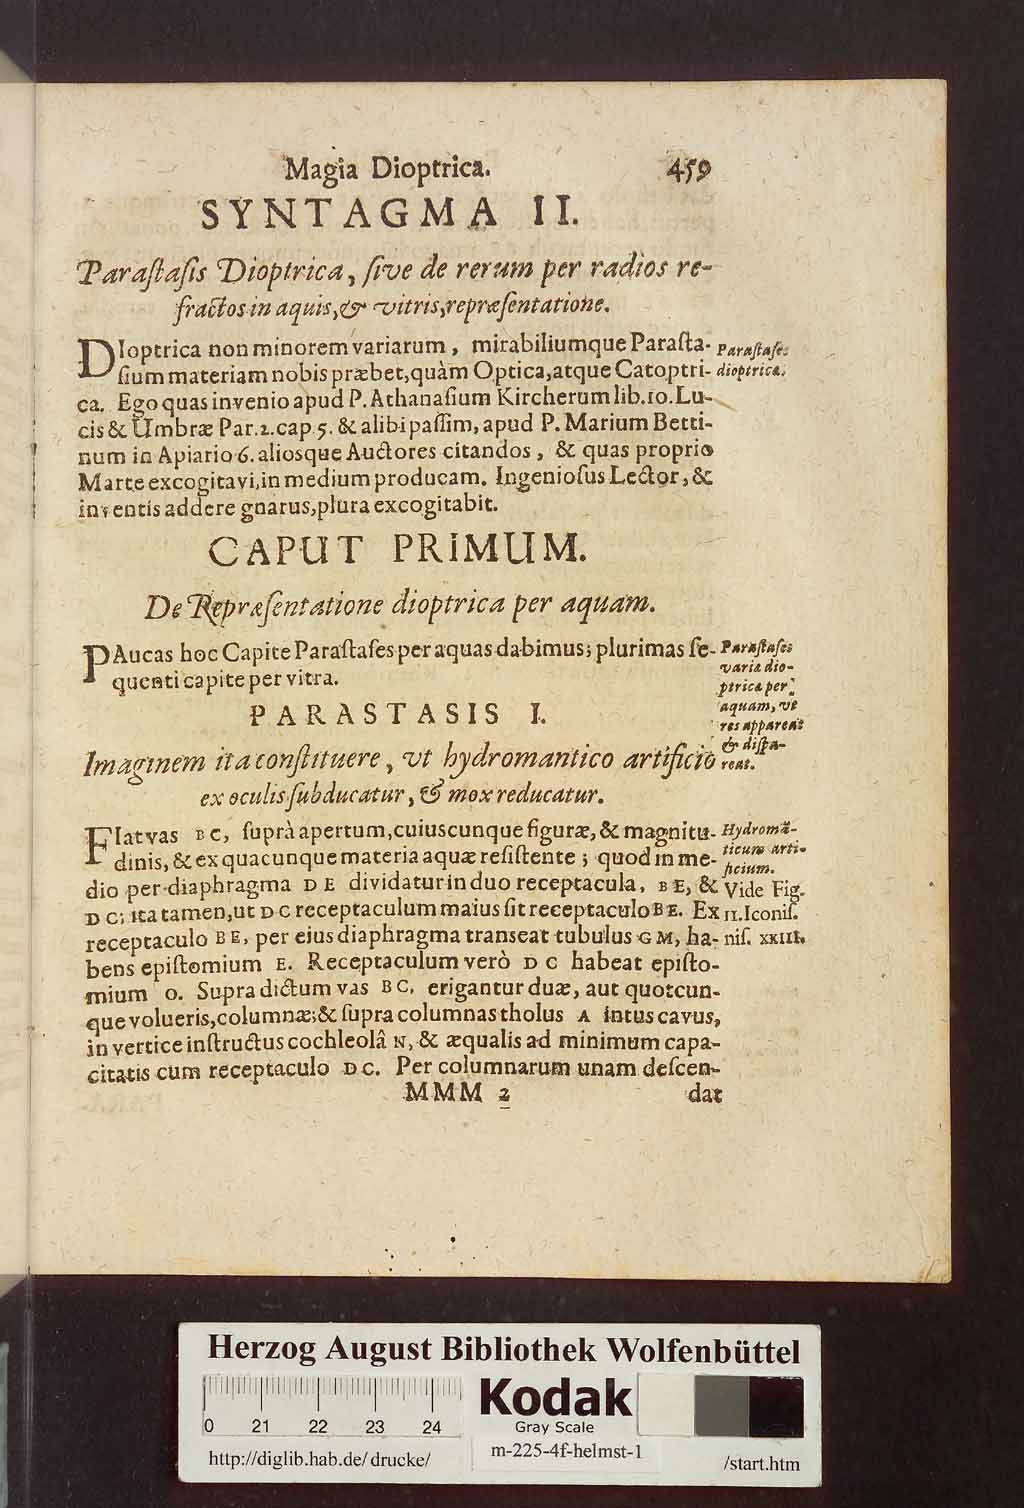 Magia Dioptrica. 459
SYNTAGMA II.
Paraſtaſis Dioptrica, ſive de rerum per radios re-
fractos in aquis, & vitris, repræſentatione.
DIoptrica non minorem variarum, mirabiliumque Paraſta-
ſium materiam nobis præbet, quàm Optica, atque Catoptri-
ca. Ego quas invenio apud P. Athanaſium Kircherum lib. 10. Lu-
cis & Umbræ Par. 2. cap. 5. & alibi paſſim, apud P. Marium Betti-
num in Apiario 6. aliosque Auctores citandos, & quas proprio
Marte excogitavi, in medium producam. Ingenioſus Lector, &
inventis addere gnarus, plura excogitabit.
Paraſtaſes
dioptricæ.
CAPUT PRIMUM.
De Repræſentatione dioptrica per aquam.
PAucas hoc Capite Paraſtaſes per aquas dabimus; plurimas ſe-
quenti capite per vitra.
Paraſtaſes
variæ dio-
ptricæ per
aquam, vt
res appareat
& diſpa-
reat.
PARASTASIS I.
Imaginem ita conſtituere, vt hydromantico artificio
ex oculis ſubducatur, & mox reducatur.
FIat vas BC, ſuprà apertum, cuiuscunque figuræ, & magnitu-
dinis, & ex quacunque materia aquæ reſiſtente; quod in me-
dio per diaphragma DE dividatur in duo receptacula, BE, &
DC; ita tamen, ut DC receptaculum maius ſit receptaculo BE. Ex
receptaculo BE, per eius diaphragma transeat tubulus GM, ha-
bens epiſtomium E. Receptaculum verò DC habeat epiſto-
mium O. Supra dictum vas BC, erigantur duæ, aut quotcun-
que volueris, columnæ; & ſupra columnas tholus A intus cavus,
in vertice inſtructus cochleolâ N, & æqualis ad minimum capa-
citatis cum receptaculo DC. Per columnarum unam deſcen-
Hydromā-
ticum arti-
ficium.
Vide Fig.
11. Iconiſ.
niſ. XXIII.
MMM 2 dat
Herzog August Bibliothek Wolfenbüttel
0 21 22 23 24
Kodak
Gray Scale
http://diglib.hab.de/drucke/ m-225-4f-helmst-1 /start.htm